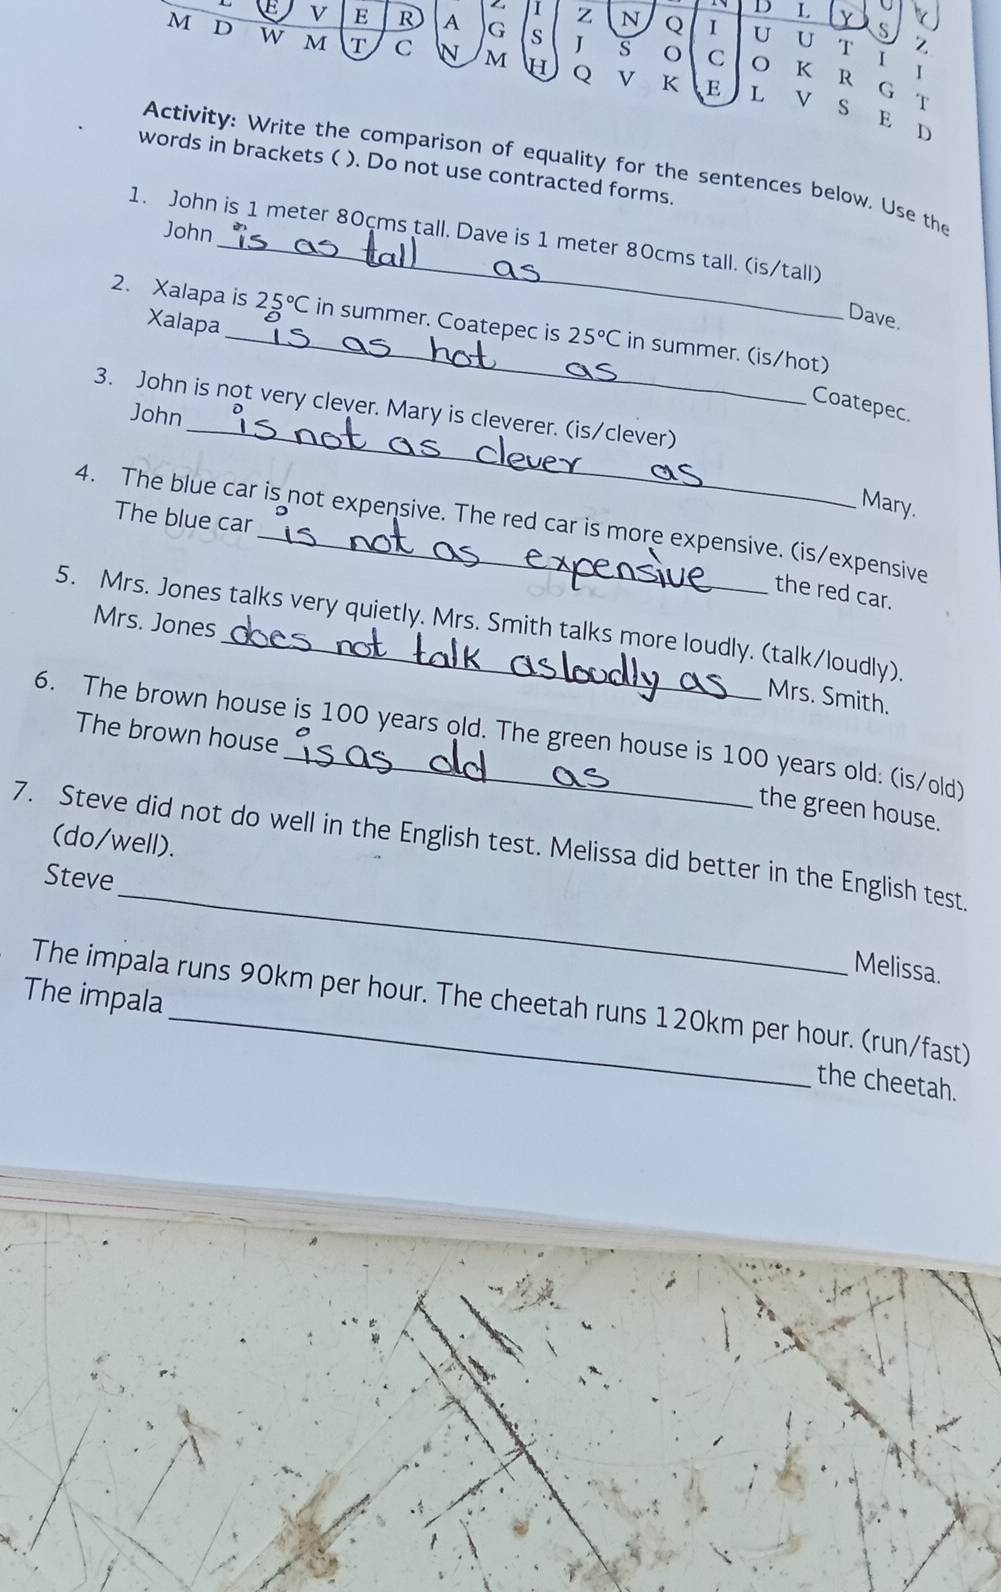 E V E R A G I Z N Q I D L Y S Z
M D W M T C N M S J S O C U U T I I
H Q V K E O K R G T
L V S E D
Activity: Write the comparison of equality for the sentences below. Use the
words in brackets ( ). Do not use contracted forms.
1. John is 1 meter 80cms tall. Dave is 1 meter 80cms tall. (is/tall)
John is as tall as Dave.
2. Xalapa is 25°C in summer. Coatepec is 25°C in summer. (is/hot)
Xalapa is as hot as Coatepec.
3. John is not very clever. Mary is cleverer. (is/clever)
John is not as clever as Mary.
4. The blue car is not expensive. The red car is more expensive. (is/expensive
The blue car is not as expensive the red car.
5. Mrs. Jones talks very quietly. Mrs. Smith talks more loudly. (talk/loudly).
Mrs. Jones does not talk as loudly as Mrs. Smith.
6. The brown house is 100 years old. The green house is 100 years old: (is/old)
The brown house is as old as the green house.
7. Steve did not do well in the English test. Melissa did better in the English test.
(do/well).
Steve Melissa.
The impala runs 90km per hour. The cheetah runs 120km per hour. (run/fast)
The impala the cheetah.